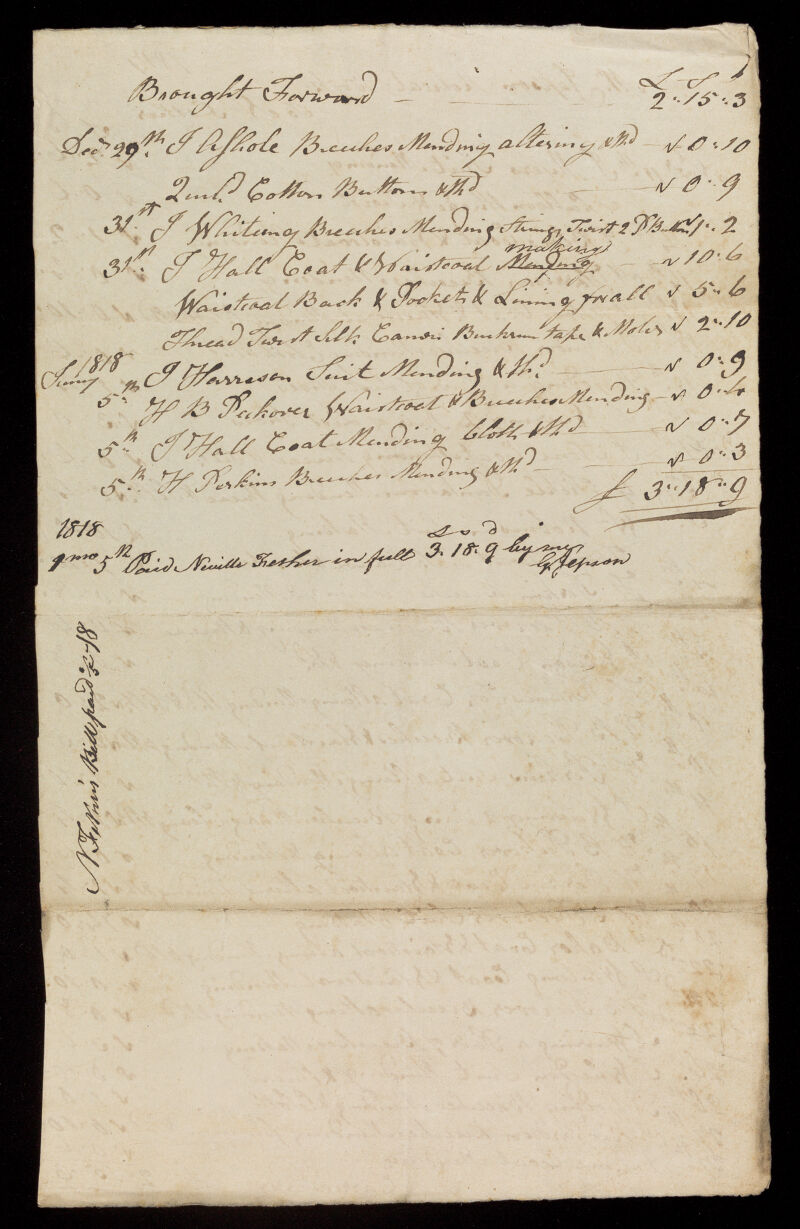 £ S
Brought Forward — 2 " 15 " 3
Decr 29th J Ashole Breeches Mending altering & thd — v 0 " 10
Cotton Buttons & thd v 0 " 9
31st J Whiting Breeches Mending Strings Twist 2 Butn v 1 " 2
making
31st J Hall Coat & Waistcoat Mending v 10 " 6
Waistcoat Back & Pockets & Lining for all v 5 " 6
Thread Twist Silk Canvis Buckrum tape & v 2 " 10
1818
5th J Harreson Suit Mending & thd — v 0 " 9
H B Peckover Waistcoat & Breeches Mending — v 0 " 4
5th J Hall Coat Mending Cloth & thd — v 0 " 7
5th H Perkins Breeches Mending & thd — v 0 " 3
£ 3 " 18 " 9
1818
£ s d
1 mo 5th Paid Neville Fesher in full 3. 18. 9 by me
G Jepson
N Bill paid 18